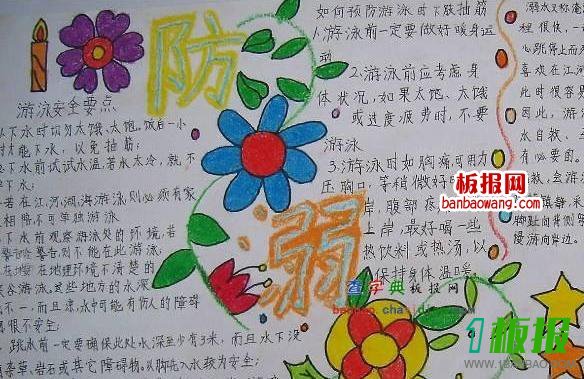 防
弱
游泳安全要点
下水时切勿太饿、太饱。饭后一小
时才能下水，以免抽筋；
下水前试试水温，若水太冷，就不
下水；
若在江、河、湖、海游泳，则必须有
相陪，不可单独游泳
下水前观察游泳处的环境，若
告，则不能在此游泳；
在地理环境不清楚的
游泳。这些地方的水深
不一，而且凉，水中可能有伤人的障碍
很不安全；
跳水前一定要确保此处水深至少有3米，而且水下没
杂草、岩石或其它障碍物。以脚先入水较为安全；
如何预防游泳时下肢抽筋
1.游泳前一定要做好暖身运
动
2.游泳前应考虑身
体状况，如果太饱、太饿
或过度疲劳时，不要
游泳
3.游泳时如胸痛可用力
压胸口，等稍微好
岸，腹部疼
上岸，最好喝一些
热饮料或热汤，以
保持身体温暖。
溺水又称
程很快，一
心跳停止而
喜欢在江河
此时很容易
因此，会游
水自救、
有必要的。
脚趾向背侧
慢游向岸边。
板报网
banbaowang.com
查字典 板报网
1板报
WWW.1BANBAO.COM